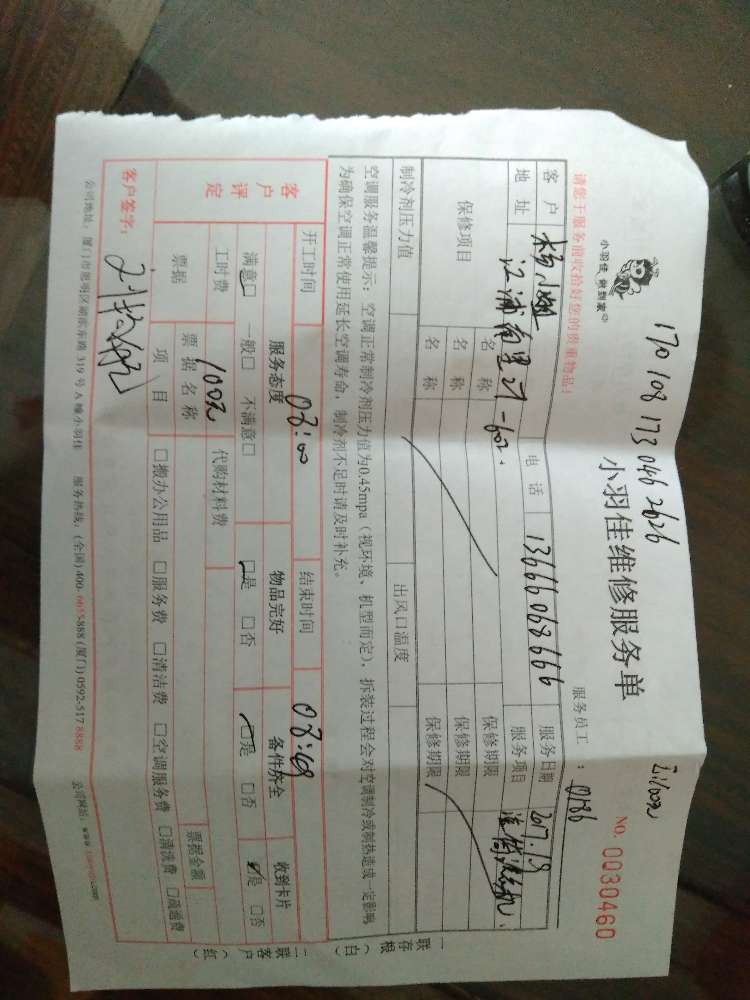 170 108 173 046 2626
小羽佳 做到家
小羽佳维修服务单
NO. 0030460
请您于服务前收拾好您的贵重物品!
服务员工 : 0186
客户 杨小姐 电话 13666068666 服务日期 2017.1.9
地址 江浦南里27-602. 服务项目
保修项目 名称 保修期限
名称 保修期限
名称 保修期限
制冷剂压力值 出风口温度
空调服务温馨提示:空调正常制冷剂压力值为0.45mpa(视环境、机型而定),拆装过程会对空调制冷或制热造成一定影响
为确保空调正常使用延长空调寿命,制冷剂不足时请及时补充。
开工时间 08:00 结束时间 08:49
客户评定 服务态度 物品完好 备件齐全 收到卡片
满意□ 一般□ 不满意□ □是 □否 □是 □否 □是 □否
工时费 100元 代购材料费
票据 票据名称 票据金额
项目 □搬办公用品 □服务费 □清洁费 □空调服务费 □清洗费 □疏通费
客户签字:
公司地址:厦门市思明区湖滨东路319号A幢小羽佳 服务热线:(全国)400-6655-888 (厦门) 0592-517 8888 公司网址:
一联存根(白)
二联客户(红)